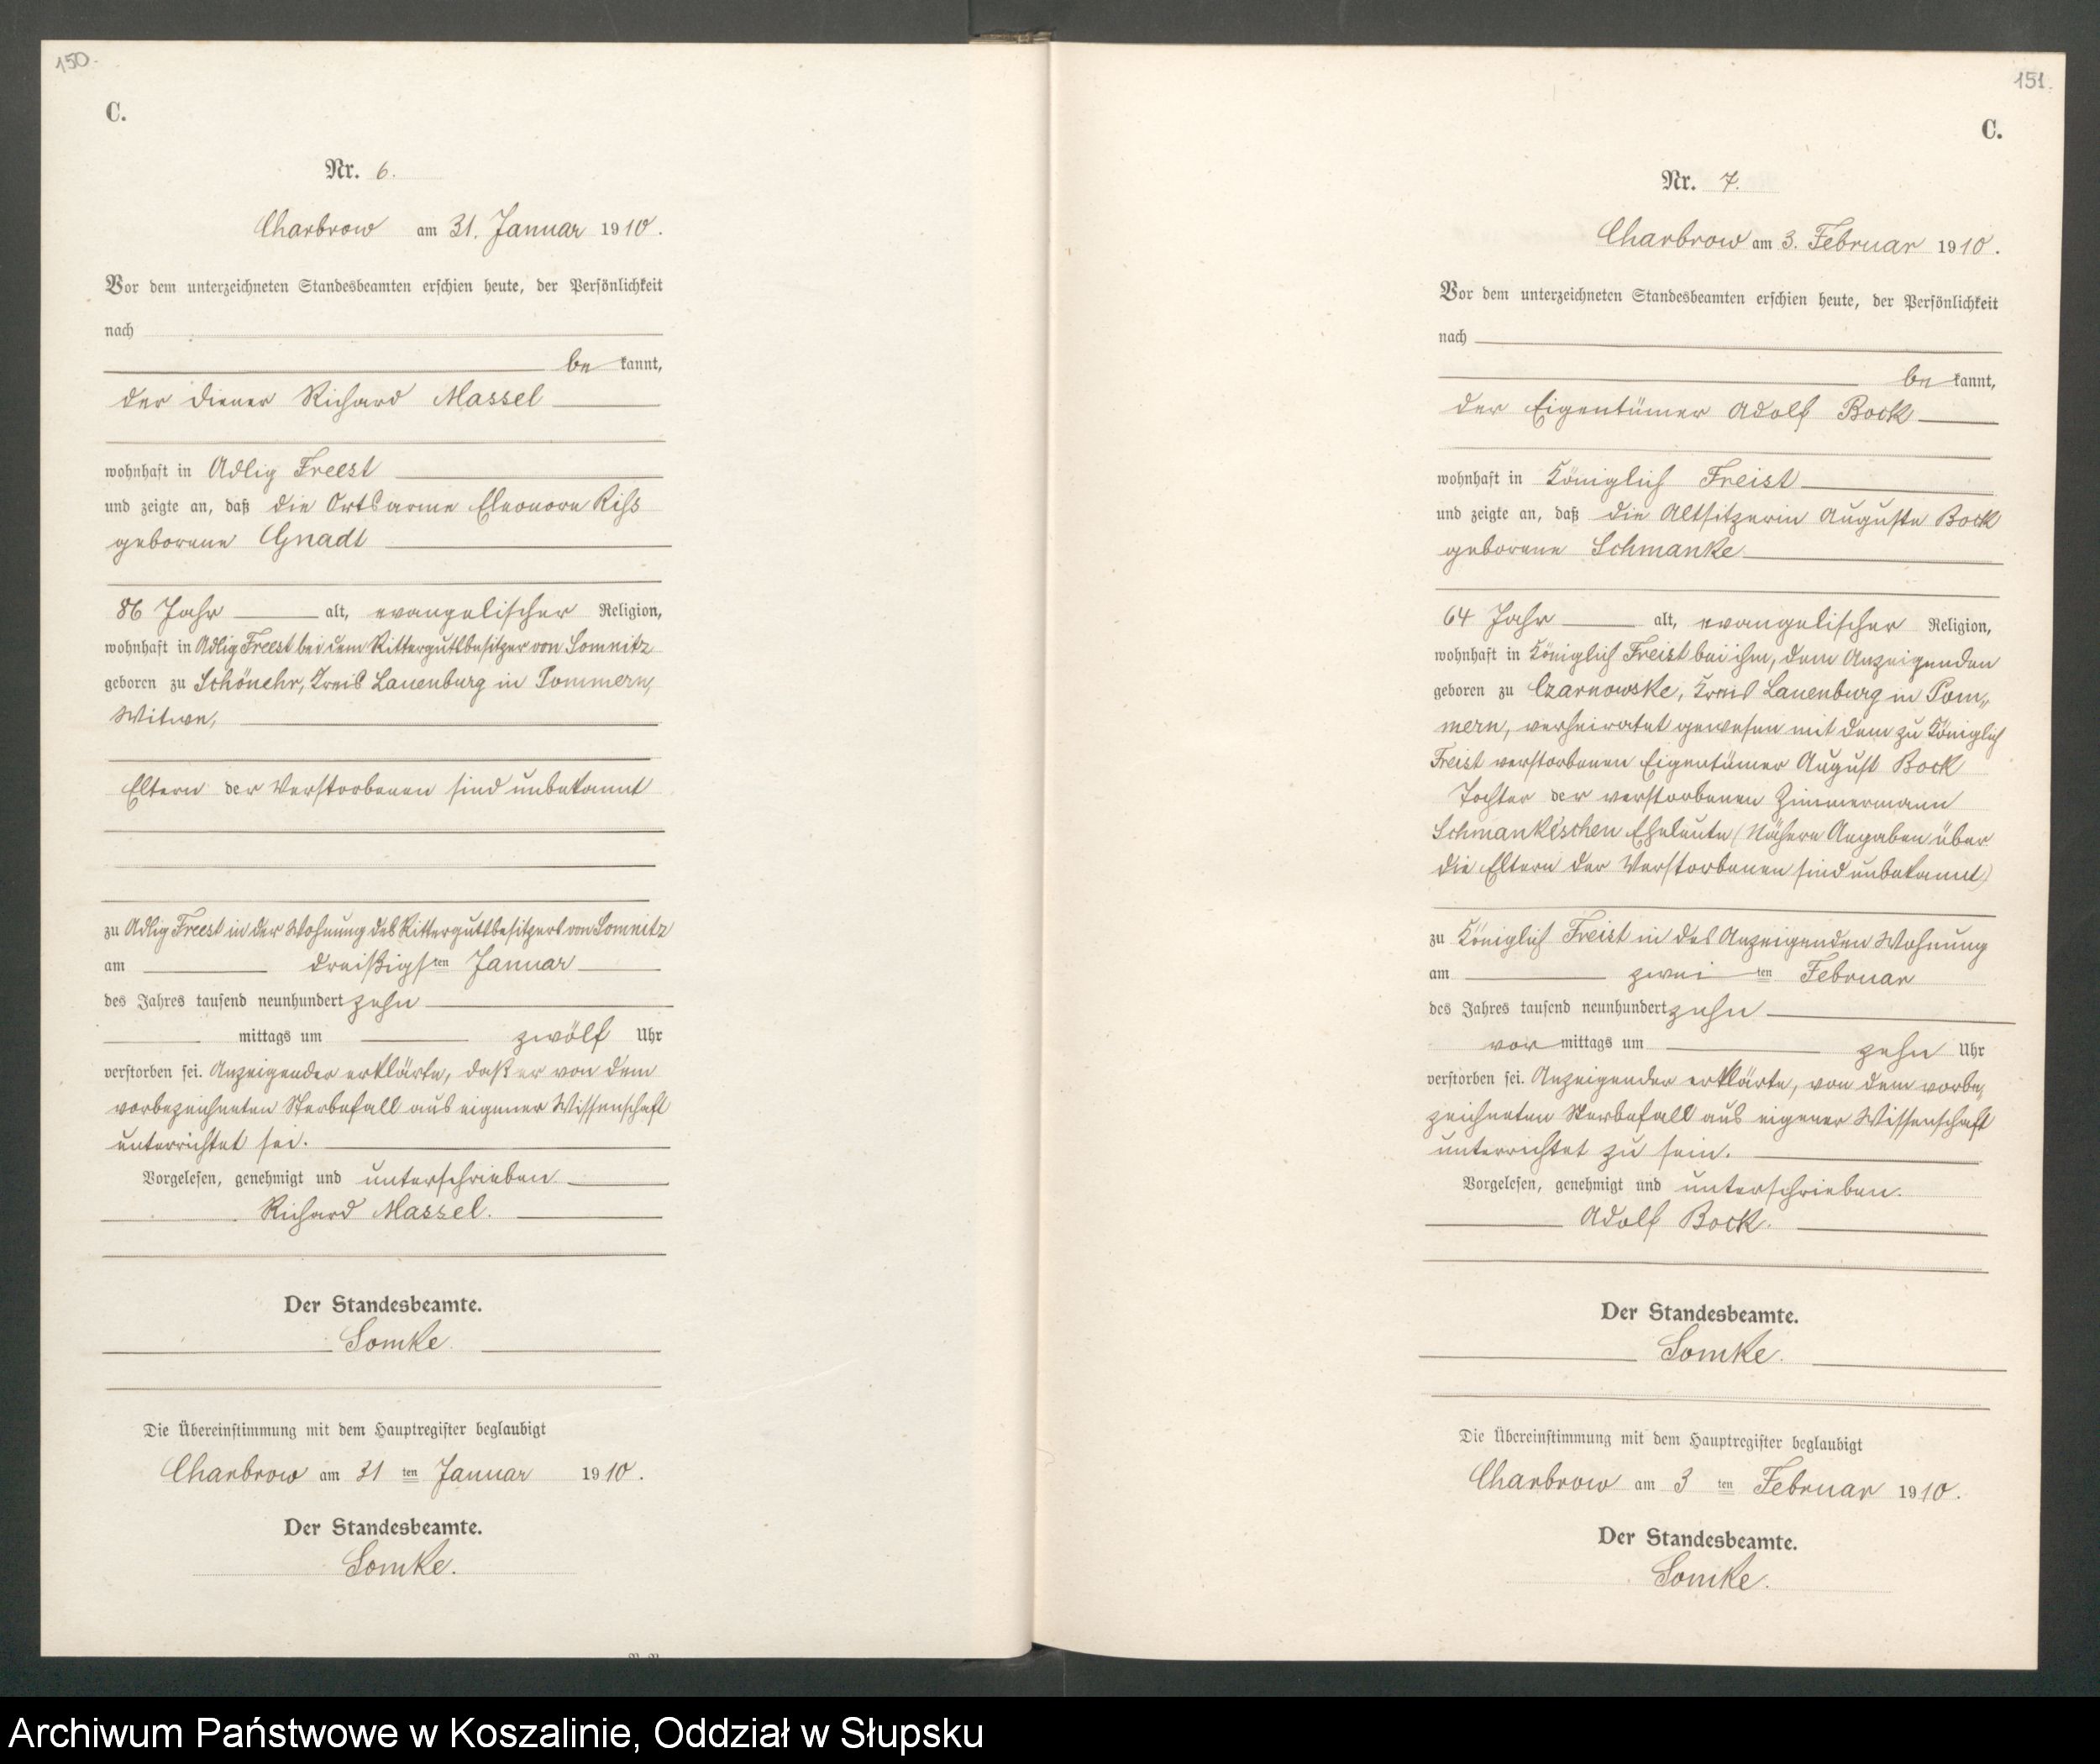 150.
C.
Nr. 6.
Charbrow am 31. Januar 1910.
Vor dem unterzeichneten Standesbeamten erschien heute, der Persönlichkeit
nach
be kannt,
der Diener Richard Massel
wohnhaft in Adlig Freest
und zeigte an, daß die Ortsarme Eleonore Riss
geborene Gnadt
86 Jahr alt, evangelischer Religion,
wohnhaft in Adlig Freest bei dem Rittergutsbesitzer von Somnitz
geboren zu Schönehr, Kreis Lauenburg in Pommern,
Witwe,
Eltern der Verstorbenen sind unbekannt
zu Adlig Freest in der Wohnung des Rittergutsbesitzers von Somnitz
am dreißigsten Januar
des Jahres tausend neunhundert zehn
mittags um zwölf Uhr
verstorben sei. Anzeigender erklärte, daß er von dem
vorbezeichneten Sterbefall aus eigener Wissenschaft
unterrichtet sei.
Vorgelesen, genehmigt und unterschrieben
Richard Massel.
Der Standesbeamte.
Somke.
Die Übereinstimmung mit dem Hauptregister beglaubigt
Charbrow am 31 ten Januar 1910.
Der Standesbeamte.
Somke.
151.
C.
Nr. 7.
Charbrow am 3. Februar 1910.
Vor dem unterzeichneten Standesbeamten erschien heute, der Persönlichkeit
nach
be kannt,
der Eigentümer Adolf Bock
wohnhaft in Königlich Freist
und zeigte an, daß die Altsitzerin Auguste Bock
geborene Schmanke
64 Jahr alt, evangelischer Religion,
wohnhaft in Königlich Freist bei ihm, dem Anzeigenden
geboren zu Czarnowske, Kreis Lauenburg in Pom„
mern, verheiratet gewesen mit dem zu Königlich
Freist verstorbenen Eigentümer August Bock
Tochter der verstorbenen Zimmermann
Schmanke'schen Eheleute (Nähere Angaben über
die Eltern der Verstorbenen sind unbekannt)
zu Königlich Freist in des Anzeigenden Wohnung
am zwei ten Februar
des Jahres tausend neunhundert zehn
vor mittags um zehn Uhr
verstorben sei. Anzeigender erklärte, von dem vorbe„
zeichneten Sterbefall aus eigener Wissenschaft
unterrichtet zu sein.
Vorgelesen, genehmigt und unterschrieben.
Adolf Bock.
Der Standesbeamte.
Somke.
Die Übereinstimmung mit dem Hauptregister beglaubigt
Charbrow am 3 ten Februar 1910.
Der Standesbeamte.
Somke.
Archiwum Państwowe w Koszalinie, Oddział w Słupsku